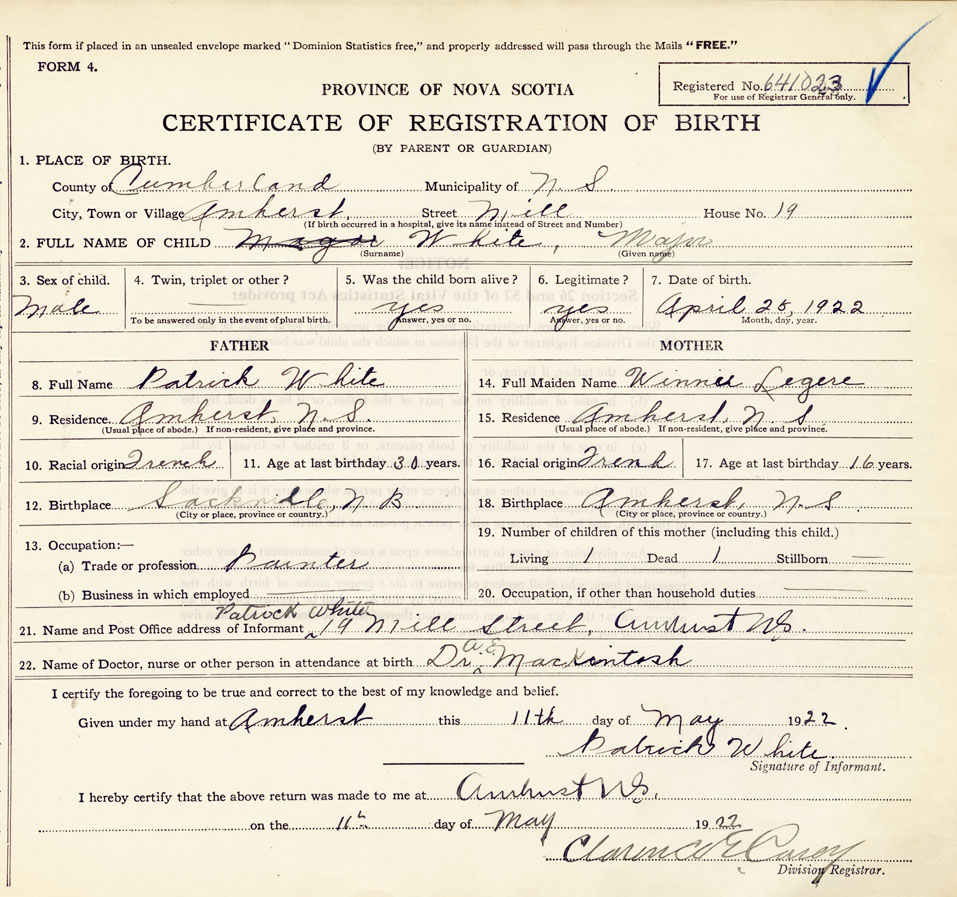 This form if placed in an unsealed envelope marked "Dominion Statistics free," and properly addressed will pass through the Mails "FREE."
FORM 4.
Registered No. 641023
For use of Registrar General only.
PROVINCE OF NOVA SCOTIA
CERTIFICATE OF REGISTRATION OF BIRTH
(BY PARENT OR GUARDIAN)
1. PLACE OF BIRTH.
County of Cumberland Municipality of N. S.
City, Town or Village Amherst, Street Mill House No. 19
(If birth occurred in a hospital, give its name instead of Street and Number)
2. FULL NAME OF CHILD Magor White, Major
(Surname) (Given name)
3. Sex of child. 4. Twin, triplet or other? 5. Was the child born alive? 6. Legitimate? 7. Date of birth.
Male yes yes April 25, 1922
To be answered only in the event of plural birth. Answer, yes or no. Answer, yes or no. Month, day, year.
FATHER MOTHER
8. Full Name Patrick White 14. Full Maiden Name Winnie Legere
9. Residence Amherst, N. S. 15. Residence Amherst, N S
(Usual place of abode.) If non-resident, give place and province. (Usual place of abode.) If non-resident, give place and province.
10. Racial origin French 11. Age at last birthday 30 years. 16. Racial origin French 17. Age at last birthday 16 years.
12. Birthplace Sackville, N B. 18. Birthplace Amherst, N. S
(City or place, province or country.) (City or place, province or country.)
13. Occupation:— 19. Number of children of this mother (including this child.)
(a) Trade or profession Painter Living 1 Dead 1 Stillborn
(b) Business in which employed 20. Occupation, if other than household duties
Patrock White
21. Name and Post Office address of Informant 19 Mill Street, Amherst NS.
22. Name of Doctor, nurse or other person in attendance at birth Dr. A. E. MacKintosh
I certify the foregoing to be true and correct to the best of my knowledge and belief.
Given under my hand at Amherst this 11th day of May 1922.
Patrick White.
Signature of Informant.
I hereby certify that the above return was made to me at Amherst NS.
on the 11th day of May 1922
Clarence E Casey
Division Registrar.